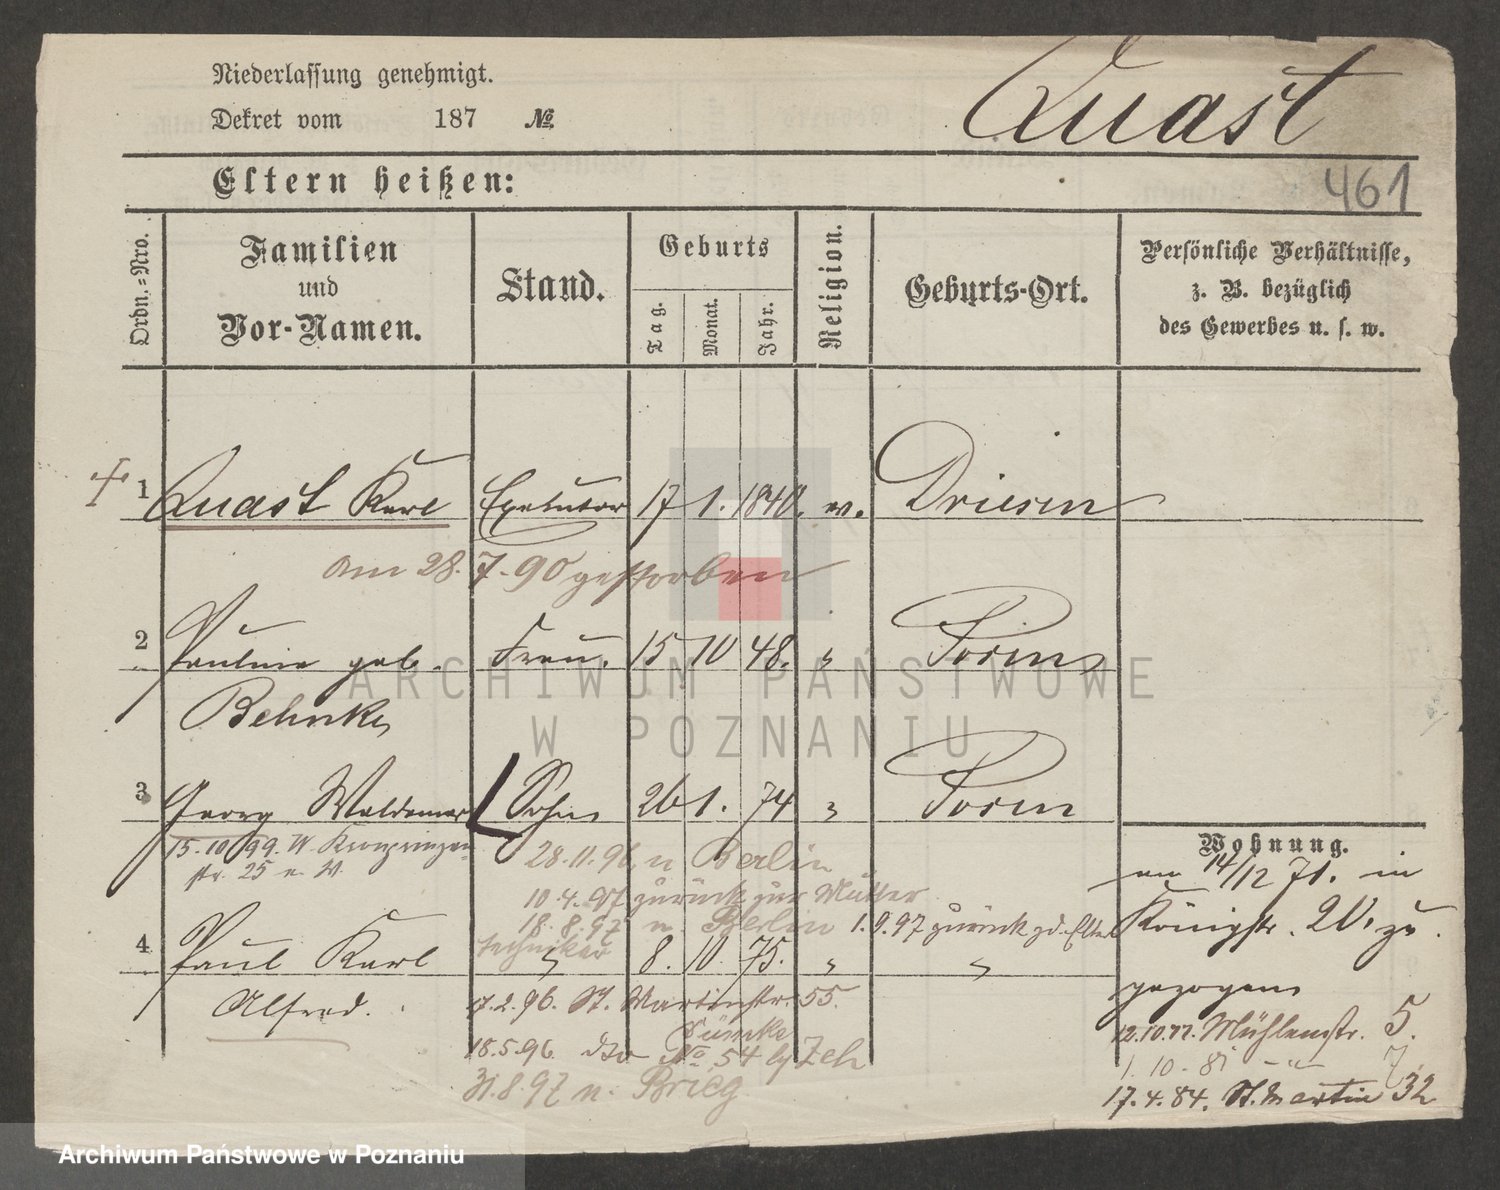 Niederlassung genehmigt.
Quast
Dekret vom 187 №
Eltern heißen:
461
Ordn.-Nro.
Familien
und
Vor-Namen.
Stand.
Geburts
Tag.
Monat.
Jahr.
Religion.
Geburts-Ort.
Persönliche Verhältnisse,
z. B. bezüglich
des Gewerbes u. s. w.
1 Quast Karl Exekutor 17 1. 1840. ev. Driesen
am 28.7.90 gestorben
2 Pauline geb. Frau. 15 10 48. " Posen
Behnke
3 Georg Waldemar Sohn 26 1. 74 " Posen
15.10.99. W. Kronprinzen
str. 25 n. W.
28.11.96 n Berlin
10.4.97 zurück zur Mutter
18.8.97 n. Berlin 1.9.97 zurück z d. Elter
Techniker
4 Paul Karl " 8. 10. 75. " "
Alfred.
7.2.96. St. Martinstr. 55.
18.5.96. No 54 Zeh
31.8.97 n. Brieg
Wohnung.
am 14/12 71. in
Königstr. 20 zu
gezogen
12.10.77. Mühlenstr. 5.
1.10.81 - " - 7
17.4.84. St. Martin 32
ARCHIWUM PAŃSTWOWE
W POZNANIU
Archiwum Państwowe w Poznaniu